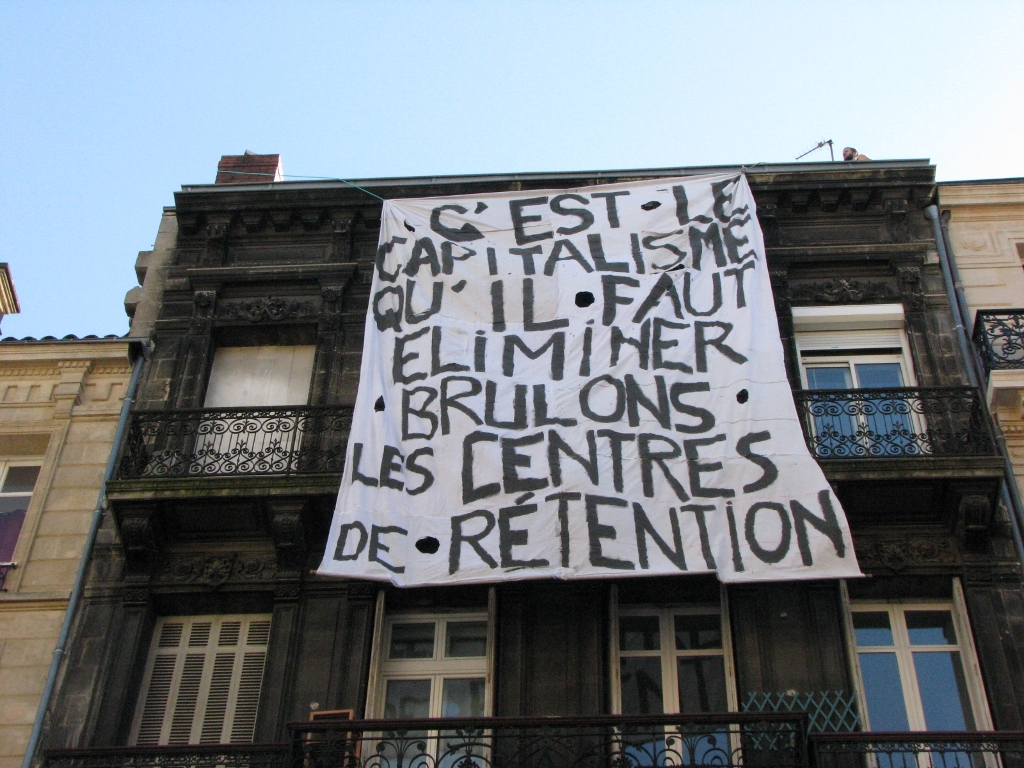 C'EST LE
CAPITALISME
QU'IL FAUT
ELIMINER
BRULONS
LES CENTRES
DE RÉTENTION